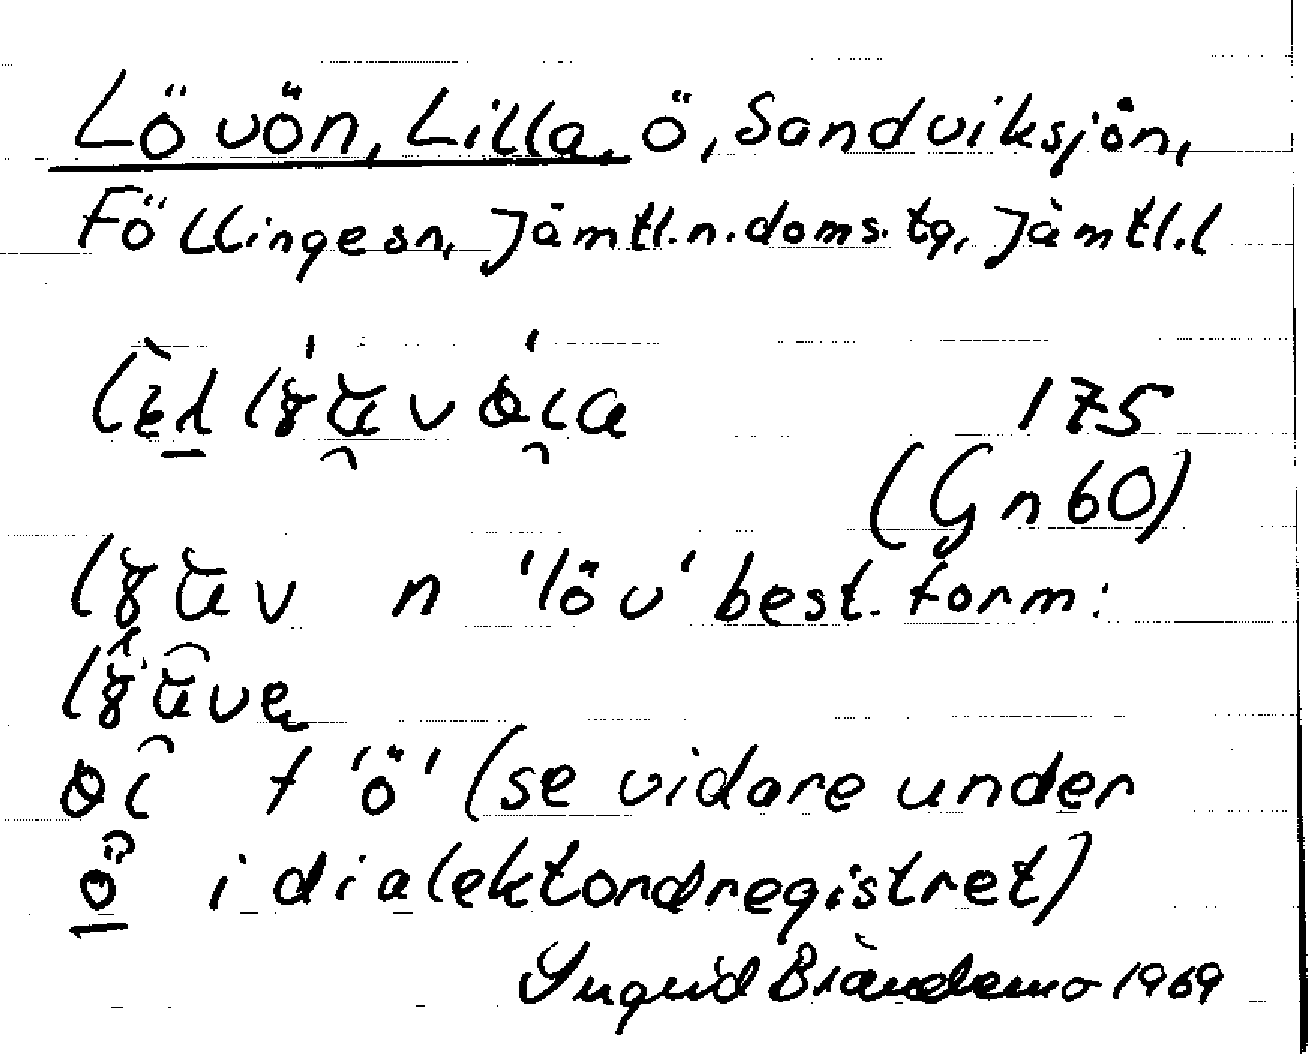 Lövön, Lilla, ö, Sandviksjön,
Föllinge sn, Jämtl. n. doms. tg, Jämtl. l
175
(Gn 60)
n 'löv' best. form:
f 'ö' (se vidare under
ö i dialektordregistret)
Ingrid Brändemo 1969